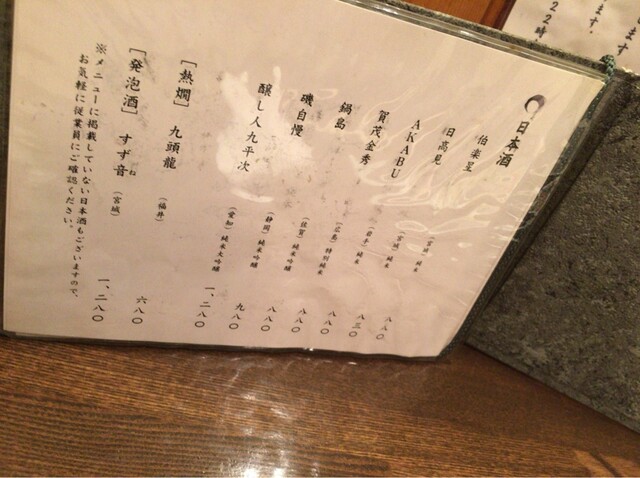 します。
ます。
22時、
日本酒
伯楽星 (宮城) 純米 八八〇
日高見 (宮城) 純米 八三〇
AKABU (岩手) 純米 八八〇
賀茂金秀 (広島) 特別純米 八八〇
鍋島 (佐賀) 純米吟醸 八八〇
磯自慢 (静岡) 純米吟醸 九八〇
醸し人九平次 (愛知) 純米大吟醸 一、二八〇
[熱燗] 九頭龍 (福井) 六八〇
[発泡酒] すず音 (宮城) 一、二八〇
※メニューに掲載していない日本酒もございますので、
お気軽に従業員にご確認ください。